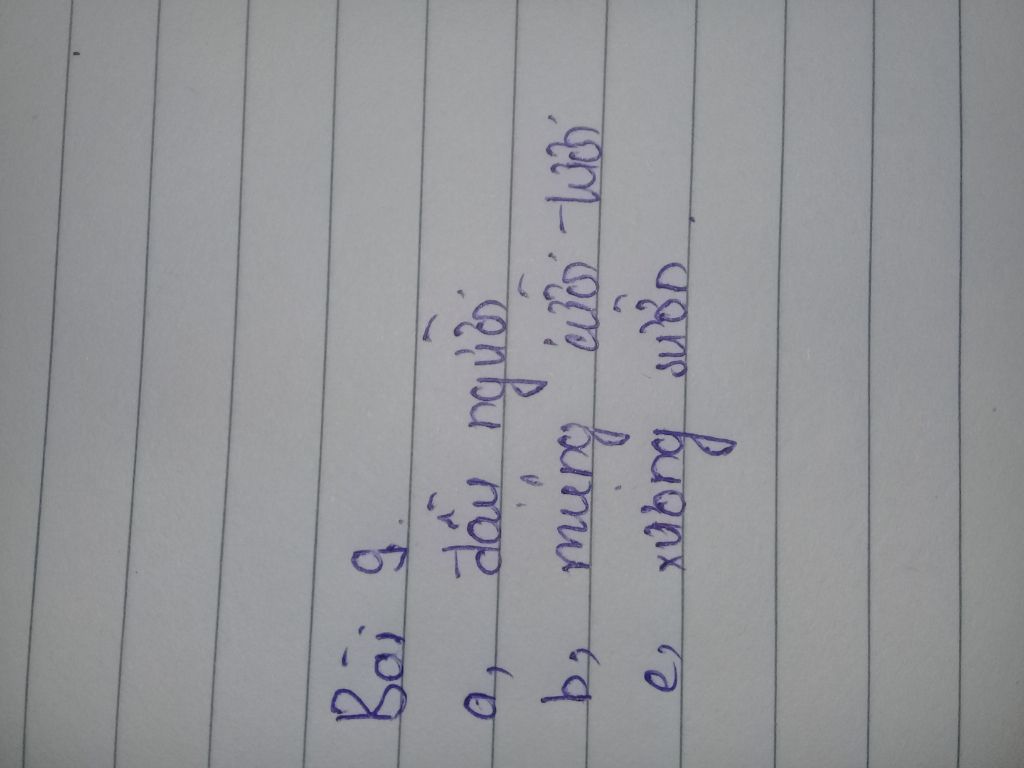 Bài 9.
a, đầu người
b, miệng cười - lưỡi
c, xương sườn